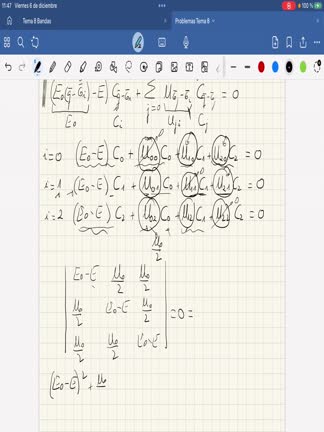 11:47 Viernes 6 de diciembre
100 %
Tema 8 Bandas
Problemas Tema 8
(E₀(q̄-Ḡᵢ)-E) C_q̄-Ḡᵢ + Σ j=0 U_Ḡⱼ-Ḡᵢ C_q̄-Ḡⱼ = 0
E₀ Cᵢ Uⱼᵢ Cⱼ
i=0 (E₀-E) C₀ + U₀₀ C₀ + U₁₀ C₁ + U₂₀ C₂ = 0
i=1 (E₀-E) C₁ + U₀₁ C₀ + U₁₁ C₁ + U₂₁ C₂ = 0
i=2 (E₀-E) C₂ + U₀₂ C₀ + U₁₂ C₁ + U₂₂ C₂ = 0
U₀/2
E₀-E U₀/2 U₀/2
U₀/2 E₀-E U₀/2 = 0 =
U₀/2 U₀/2 E₀-E
(E₀-E)² + U₀